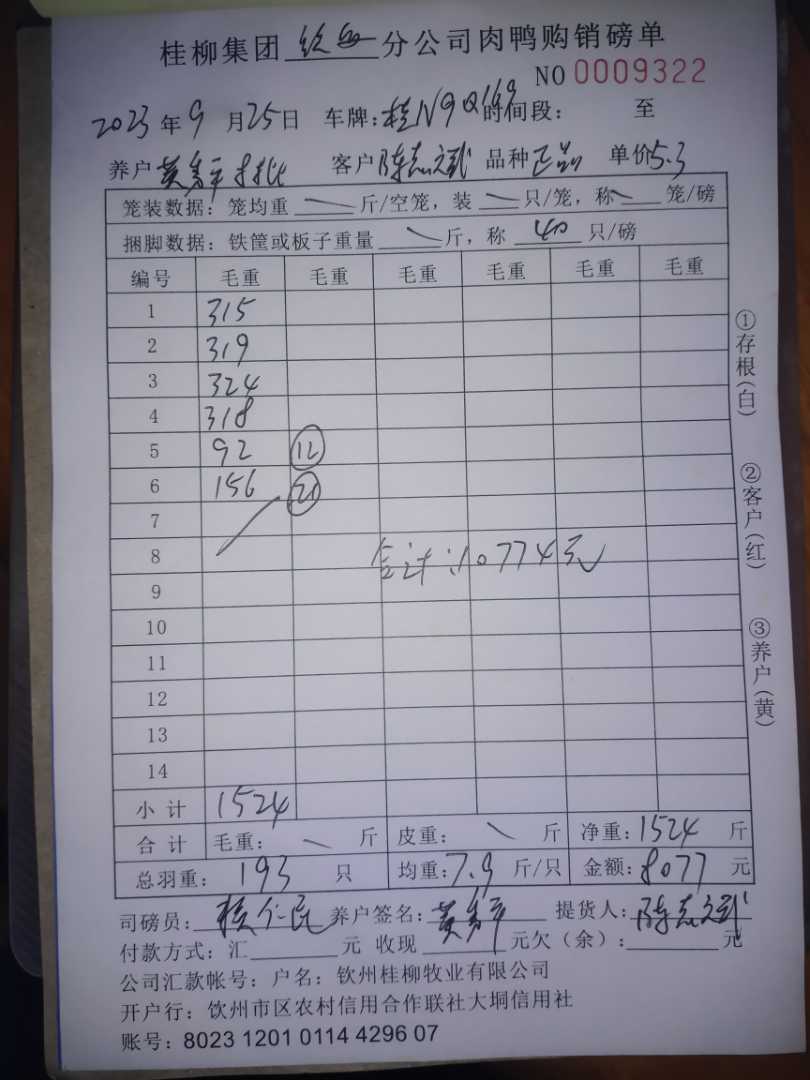 桂柳集团 钦 分公司肉鸭购销磅单
NO 0009322
2023年9月25日 车牌:桂N9Q169 时间段: 至
养户 黄秀平 客户 陈志斌 品种 正品 单价5.3
笼装数据: 笼均重 斤/空笼, 装 只/笼, 称 笼/磅
捆脚数据: 铁筐或板子重量 斤, 称 40 只/磅
编号 毛重 毛重 毛重 毛重 毛重 毛重
1 315
2 319
3 324
4 318
5 92 12
6 156 21
7
8 合计:10774元
9
10
11
12
13
14
小计 1524
合计 毛重: 斤 皮重: 斤 净重:1524 斤
总羽重: 193 只 均重:7.9 斤/只 金额:8077 元
司磅员: 养户签名:黄秀平 提货人:陈志斌
付款方式:汇 元 收现 元欠(余): 元
公司汇款帐号: 户名: 钦州桂柳牧业有限公司
开户行: 钦州市区农村信用合作联社大垌信用社
账号: 8023 1201 0114 4296 07
①存根(白)
②客户(红)
③养户(黄)